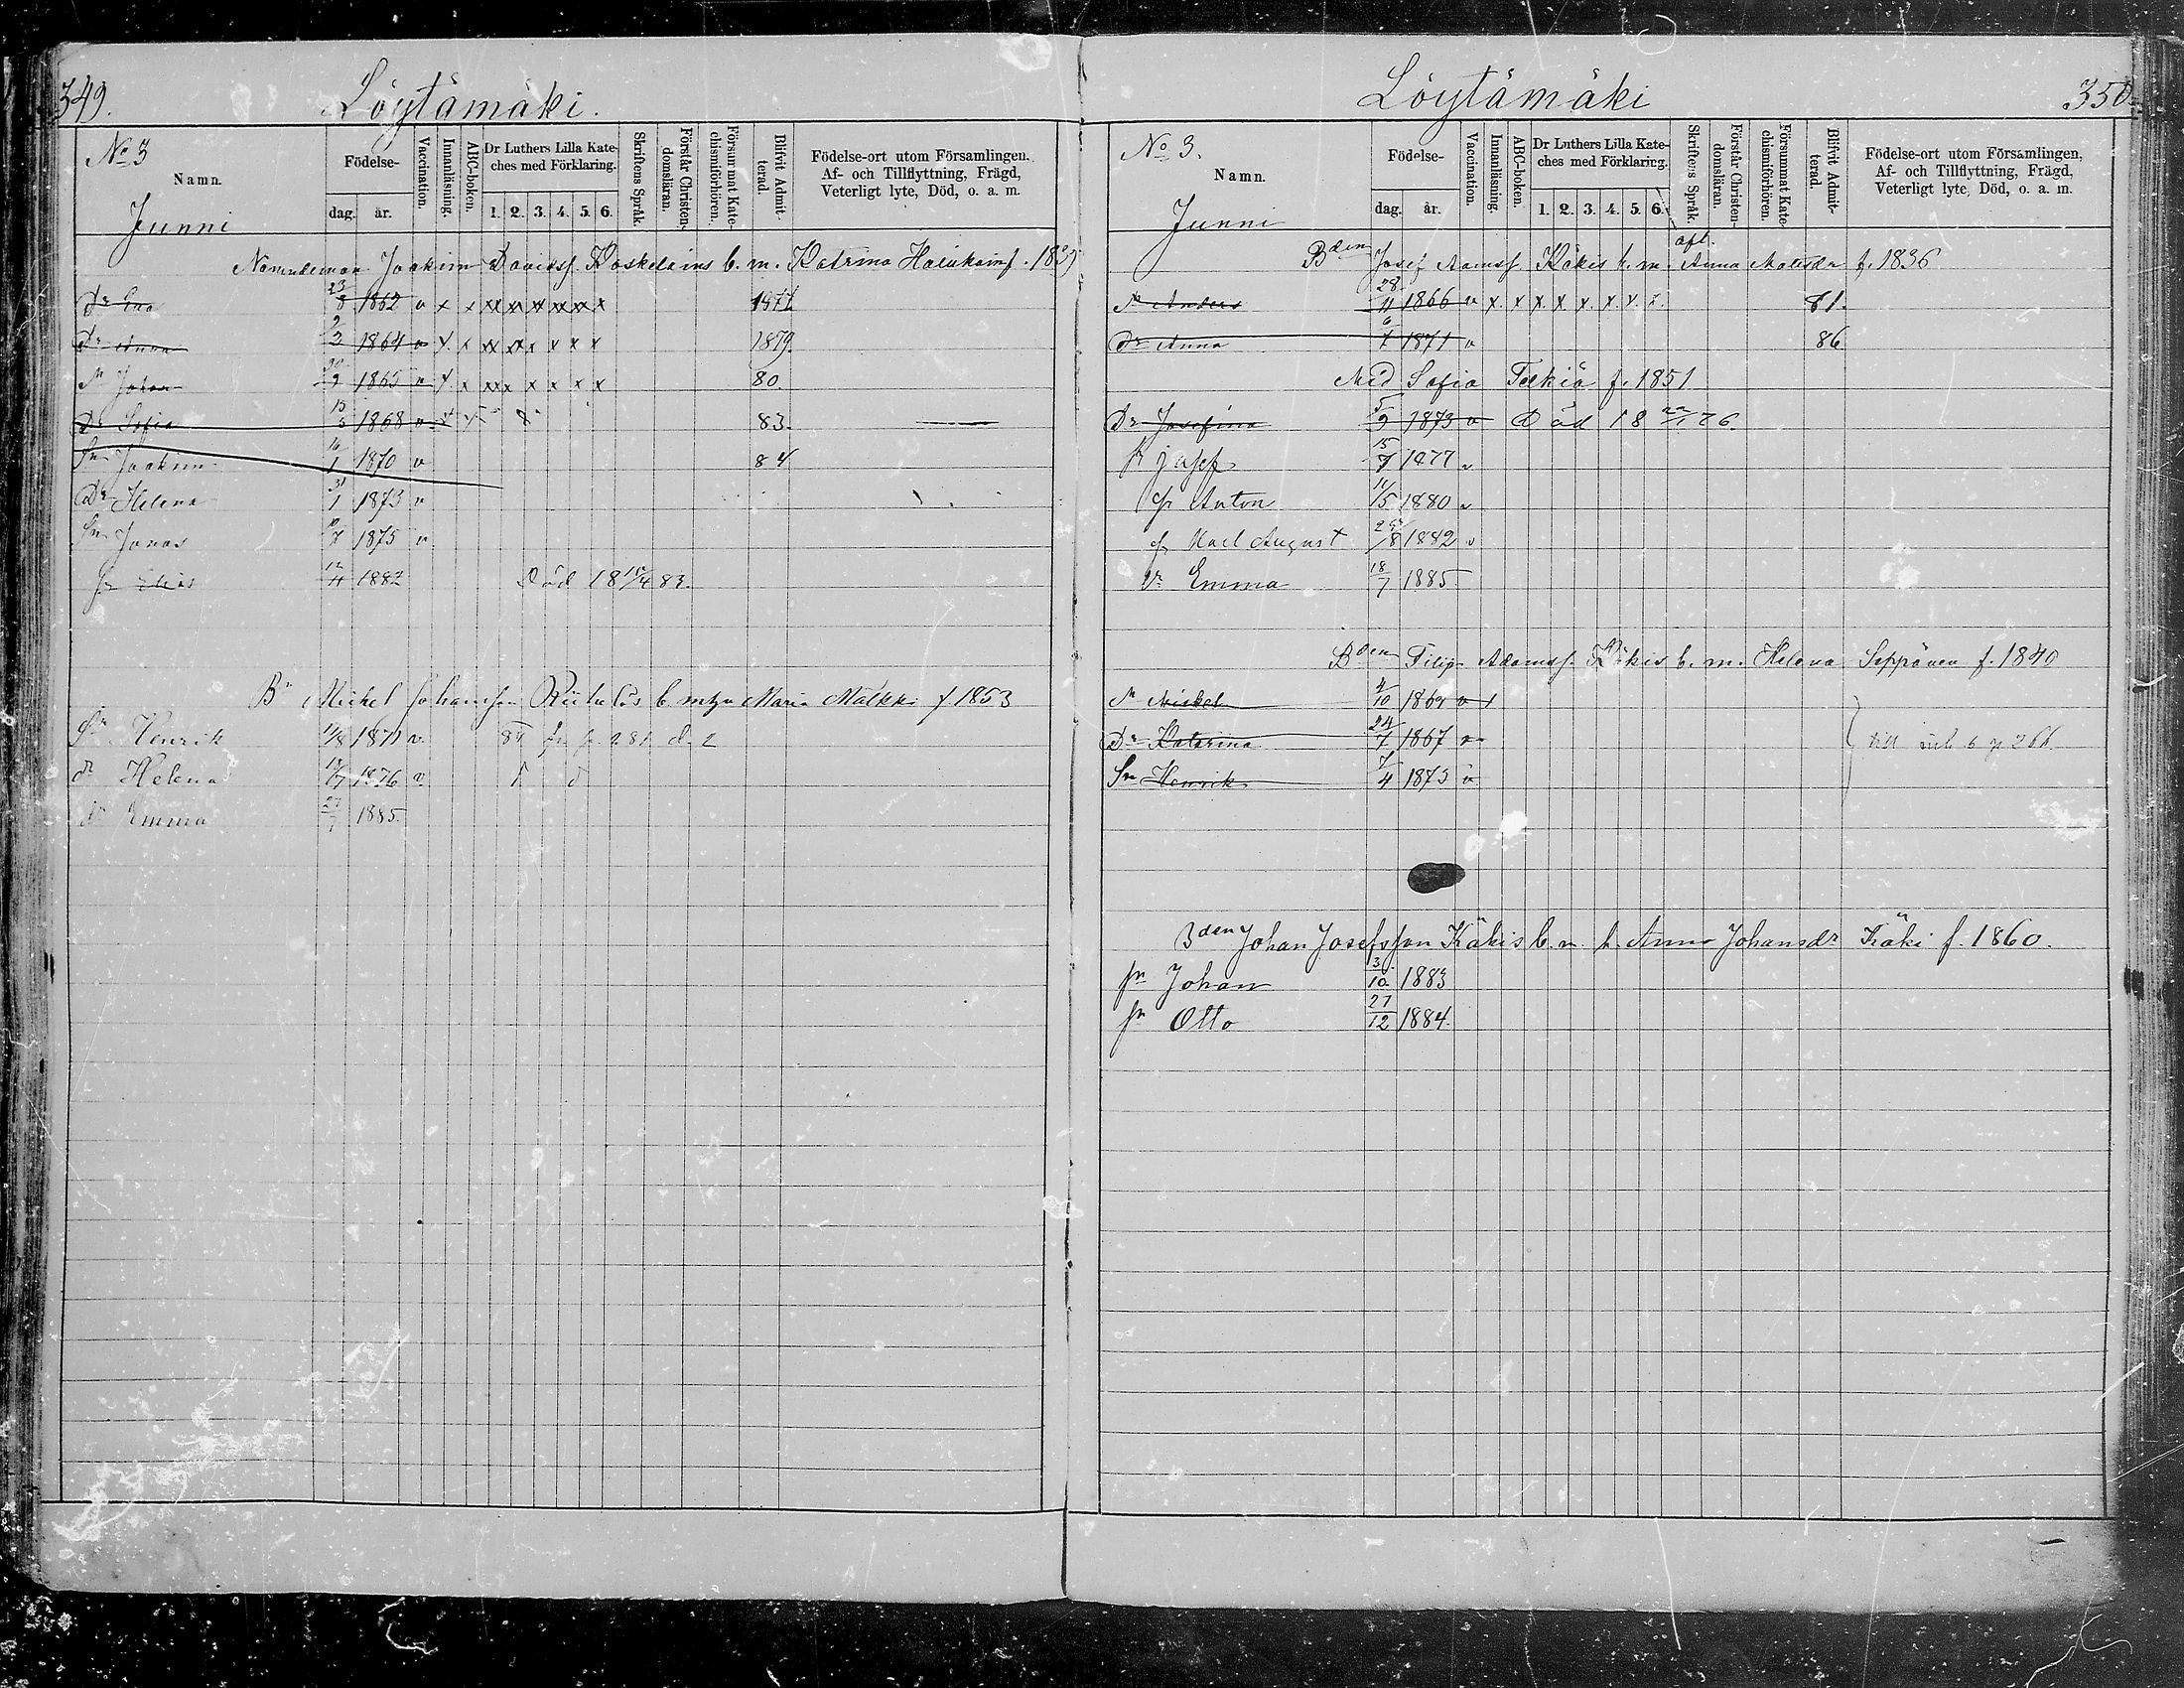 349.
Löytämäki.
No 3
Namn.
Junni
Födelse-
dag. år.
Vaccination.
Innanläsning.
ABC-boken.
Dr Luthers Lilla Kate-
ches med Förklaring.
1. 2. 3. 4. 5. 6.
Skriftens Språk.
Förstår Christen-
domsläran.
Försummat Kate-
chismiförhören.
Blifvit Admit-
terad.
Födelse-ort utom Församlingen.
Af- och Tillflyttning, Frägd,
Veterligt lyte, Död, o. a. m.
Nämndeman Joakim Davidss. Koskelains b. m. Katrina f. 1839
Dr Eva 23/8 1862 v x x xx xx xx xx xx x
Dr Anna 2/2 1864 v x x xx xx x x x x 1879.
Sn Johan 30/9 1865 v x x xx x x x x x 80.
Dr Sofia 15/5 1868 v x 83.
Sn Joakim 16/1 1870 v 84
Dr Helena 31/1 1873 v
Sn Jonas 10/7 1875 v
sn Elias 12/11 1882 Död 18 15/4 83.
Bn Mickel Johansson b. m. Maria Mälkki f 1853
Sn Henrik 11/8 1871 v. 85 fr. p. 281 d. 2
dr Helena 1876 v.
dr Emma 27/1 1885.
Löytämäki
350.
No 3.
Namn.
Junni
Födelse-
dag. år.
Vaccination.
Innanläsning.
ABC-boken.
Dr Luthers Lilla Kate-
ches med Förklaring.
1. 2. 3. 4. 5. 6.
Skriftens Språk.
Förstår Christen-
domsläran.
Försummat Kate-
chismiförhören.
Blifvit Admit-
terad.
Födelse-ort utom Församlingen,
Af- och Tillflyttning, Frägd,
Veterligt lyte, Död, o. a. m.
afl.
Bden Josef Adamss. Käkis b. m. Anna Matsdr f. 1836
Sn Anders 28/11 1866 v x. x x x x. x x. x. 81.
Dr Anna 6/7 1871 v 86
Med Sofia Telkiä f. 1851
Dr Josefina 5/9 1873 v Död 18 22/1 76.
sn Josef 15/7 1877 v
sn Anton 11/5 1880 v
sn Karl August 29/8 1882 v
dr Emma 18/7 1885
Bden Filip Adamss. Käkis b. m. Helena Seppänen f. 1840
Sn Mickel 4/10 1869 v
Dr Katarina 24/7 1867 v
till p 266
Sn Henrik 7/4 1873 v
Bden Johan Josefsson Käkis b. m. h. Anna Johansdr Käki f. 1860.
sn Johan 3/10 1883
sn Otto 27/12 1884.